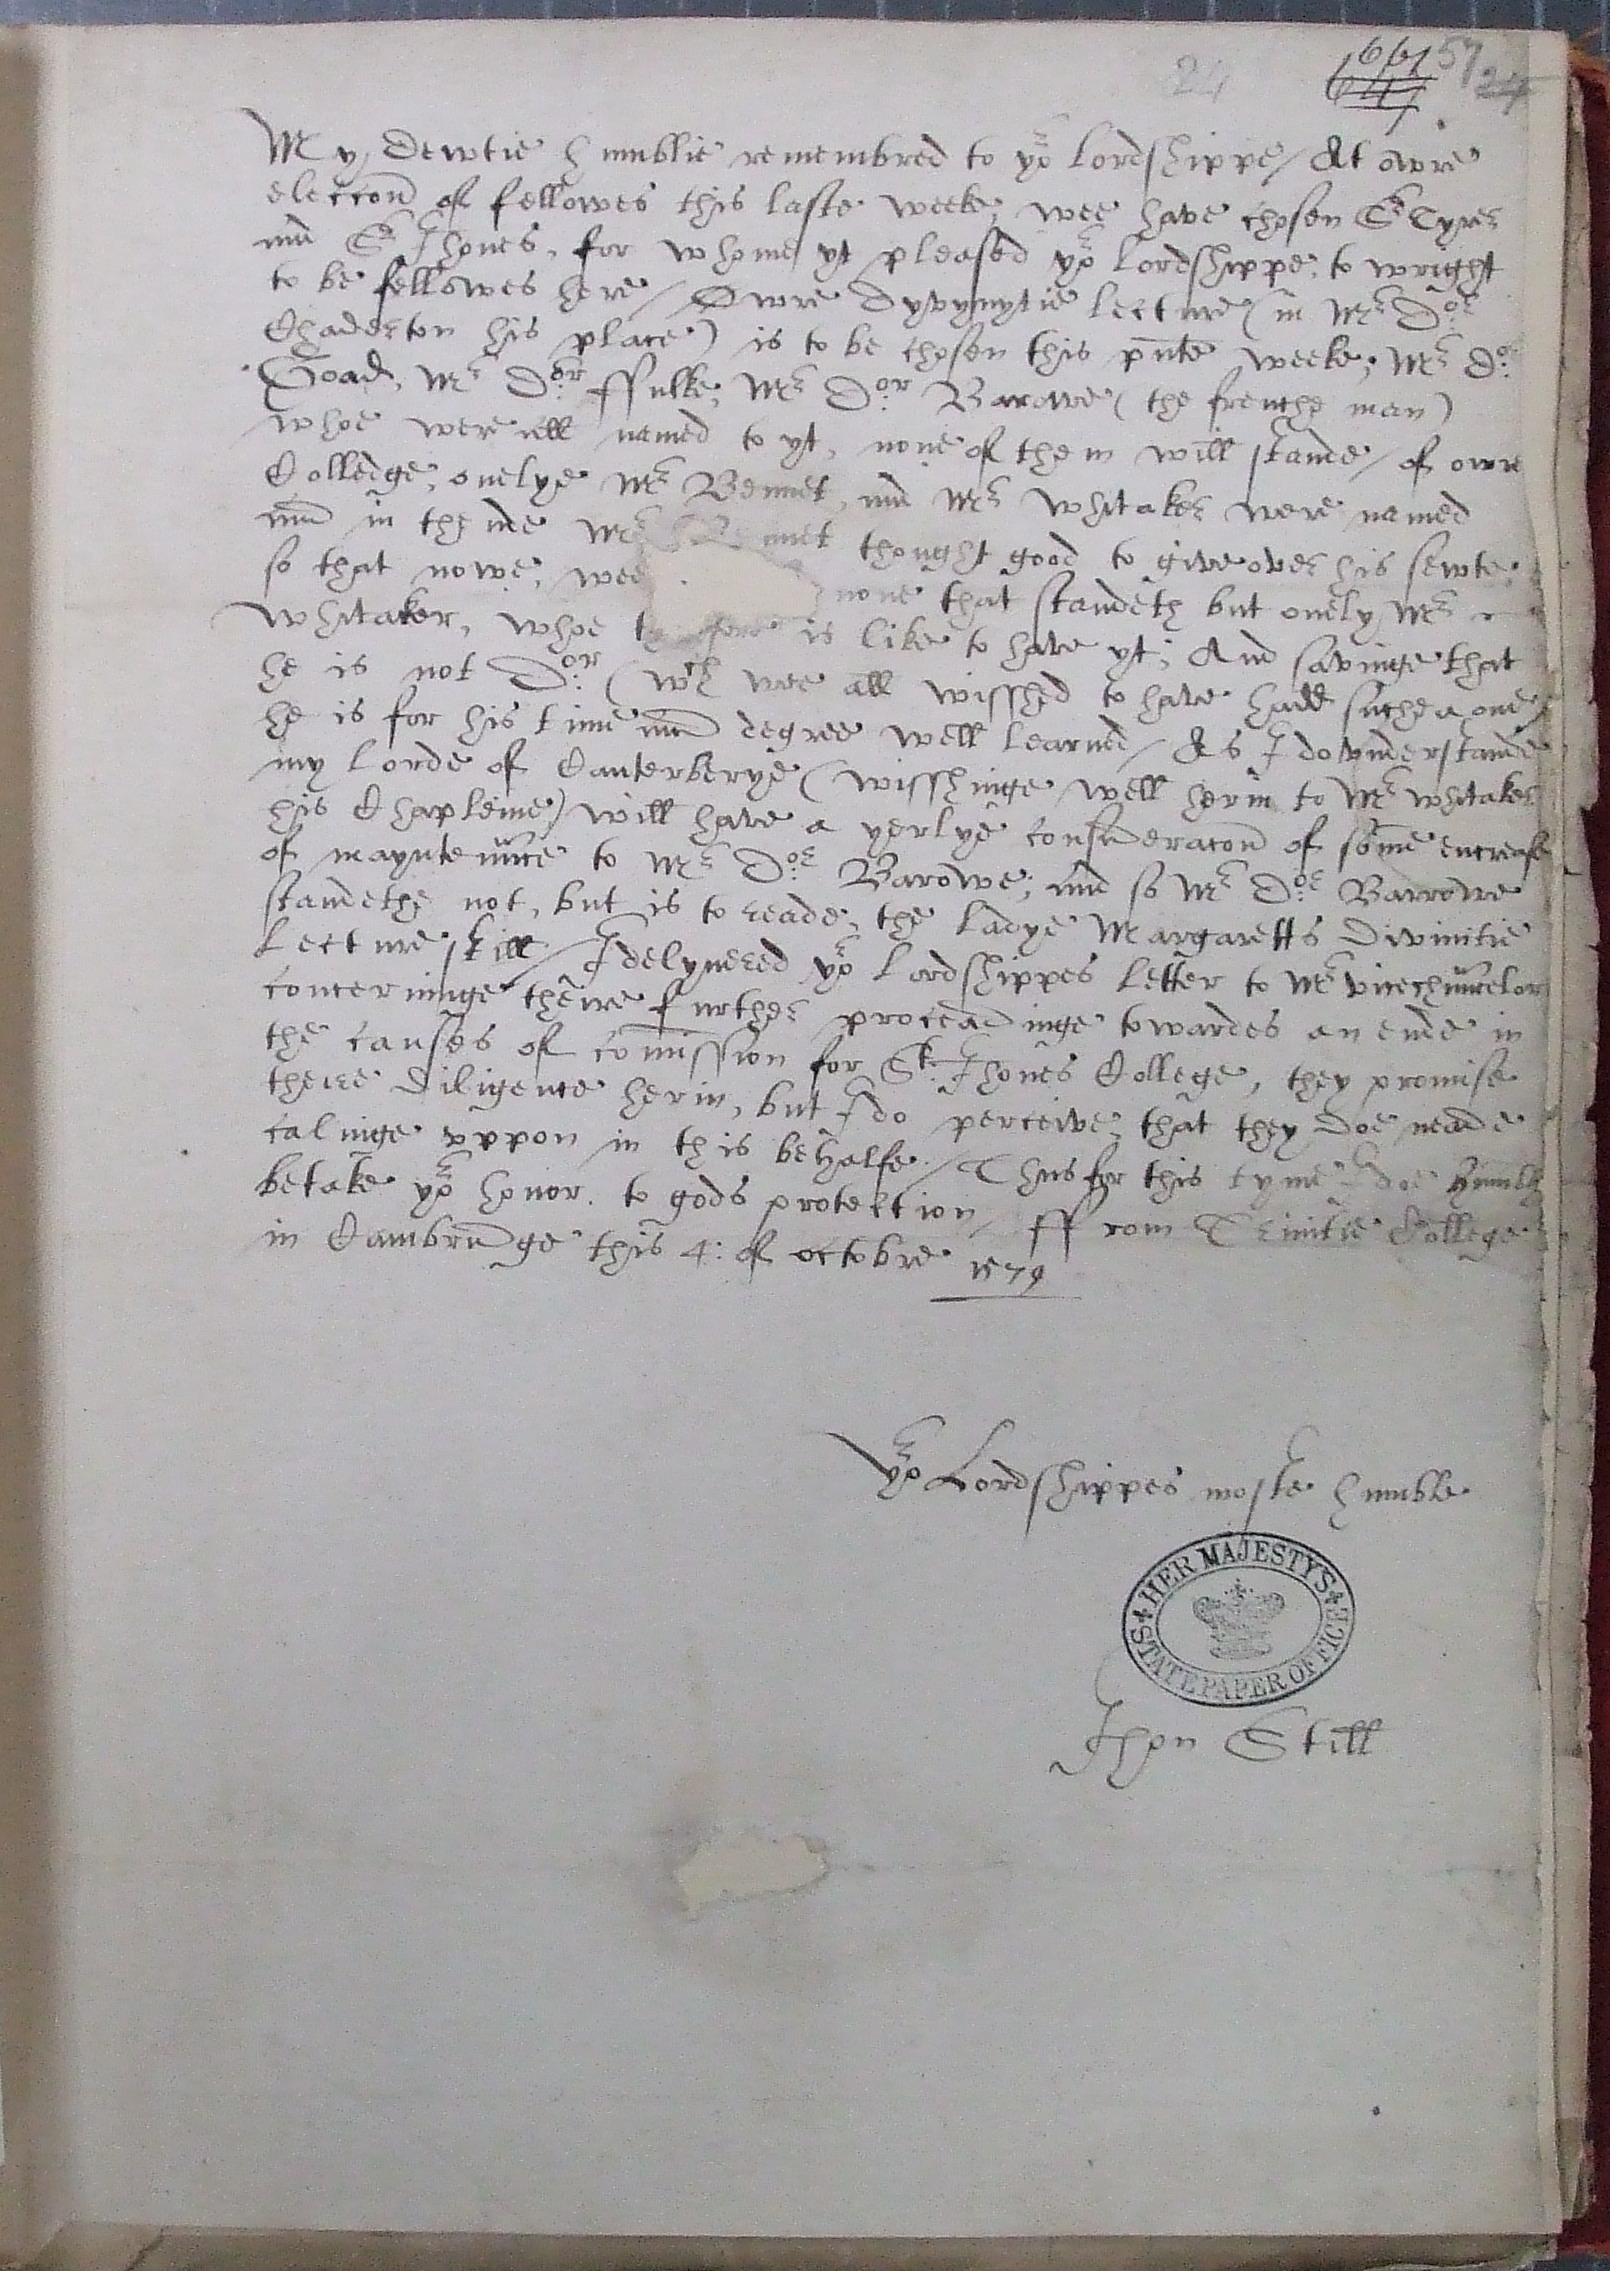 24 661 57 24
My dewtie humblie remembred to yor Lordshippe / At owre
eleccon of fellowes this laste weeke, wee have chosen Sr Tyrer
and Sr Jhones, for whome yt pleased yor Lordshippe, to wright
to be fellowes here / Owre dyvynytie lecture (in Mr Dor
Chaderton his place) is to be chosen this pnte weeke; Mr Dor
Goad, Mr Dor ffulke, Mr Dor Barowe (the frenche man)
whoe were all named to yt, none of them will stande / of owre
Colledge, onelye Mr Bennet, and Mr Whitaker were named
and in thende Mr Bennet thought good to give over his sewte,
so that nowe, wee none that standeth but onely Mr
Whitaker, whoe is like to have yt; And savinge that
he is not Dor (wch wee all wisshed to have hadd suche a one)
he is for his time and degree well learned / As I do vnderstande
my Lorde of Canterberye (wisshinge well herin to Mr Whitaker
his Chapleine) will have a yerlye consideracon of some encrease
of mayntenance to Mr Dor Barowe; and so Mr Dor Barrowe
standethe not, but is to reade, the Ladye Margaretts Divinitie
Lecture still / I delyvered yor Lordshippes letter to Mr vicechancelor
concerninge theire further proceadinge towardes an ende in
the causes of comission for St Jhones College, they promise
theire diligence herin, but I do perceive, that they doe neade
calinge vppon in this behalfe. / Thus for this tyme I doe humbly
betake yor honor. to gods protection / ffrom Trinitie College
in Cambridge this 4: of octobre 1579
yor Lordshippes moste humble
HER MAJESTYS STATE PAPER OFFICE
Jhon Still